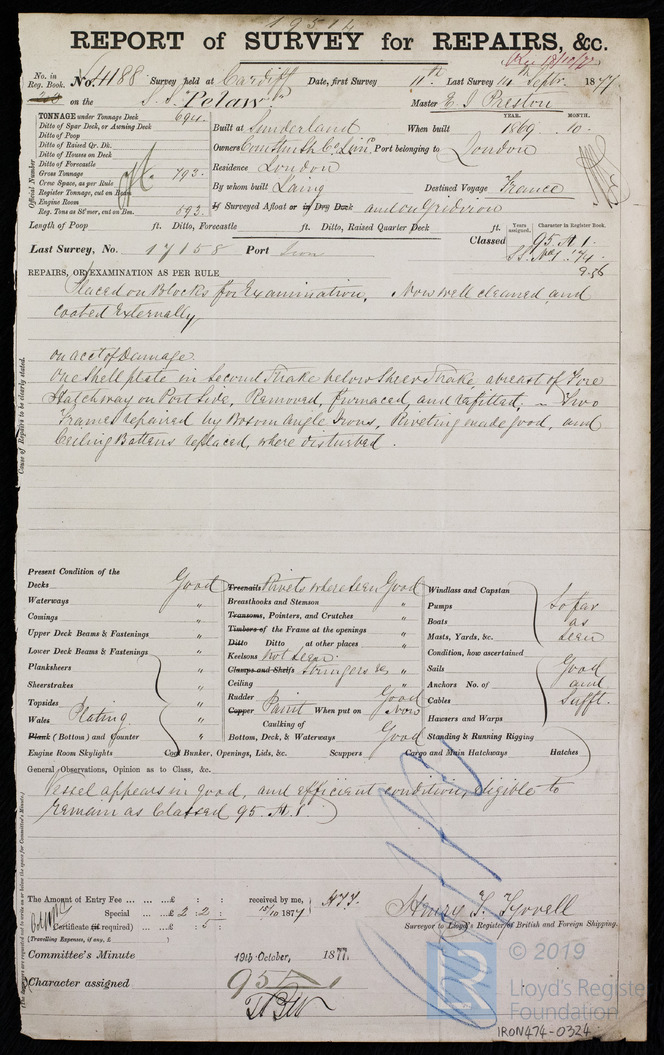 19514
REPORT of SURVEY for REPAIRS, &c.
No. in Reg. Book. No. 4188 Survey held at Cardiff Date, first Survey 11th Last Survey 14th Septr. 1877
on the S.S. "Pelaw" Master E. J. Preston
TONNAGE under Tonnage Deck 694.
Ditto of Spar Deck, or Awning Deck
Ditto of Poop
Ditto of Raised Qr. Dk.
Ditto of Houses on Deck
Ditto of Forecastle
Gross Tonnage 793.
Crew Space, as per Rule
Register Tonnage, cut on Beam
Engine Room
Reg. Tons as St'mer, cut on Bm.
Official Number
Built at Sunderland When built YEAR. 1869 MONTH. 10.
Owners Port belonging to London
Residence London
By whom built Laing Destined Voyage France
If Surveyed Afloat or in Dry Dock and on Gridiron
Length of Poop ft. Ditto, Forecastle ft. Ditto, Raised Quarter Deck ft.
Classed Years assigned. Character in Register Book. 95.A.1.
Last Survey, No. 17158 Port Iron
REPAIRS, OR EXAMINATION AS PER RULE
Placed on Blocks for Examination, Now well cleaned and
coated Externally
on acct of Damage.
One Shell plate in Second Strake below Sheer Strake, abreast of Fore
Hatchway on Port Side, Removed, furnaced, and refitted, - Two
Frames repaired by Bosom Angle Irons, Riveting made good, and
Ceiling Battens replaced, where disturbed.
Cause of Repairs to be clearly stated.
Present Condition of the
Decks Good
Waterways "
Comings "
Upper Deck Beams & Fastenings "
Lower Deck Beams & Fastenings "
Planksheers "
Sheerstrakes "
Topsides "
Wales Plating "
Plank (Bottom) and Counter "
Engine Room Skylights
Treenails Rivets where seen Good
Breasthooks and Stemson "
Transoms, Pointers, and Crutches "
Timbers of the Frame at the openings "
Ditto Ditto at other places "
Keelsons Not seen
Clamps and Shelfs Stringers &c "
Ceiling "
Rudder Good
Copper Paint When put on now
Caulking of
Bottom, Deck, & Waterways Good
Coal Bunker, Openings, Lids, &c. Scuppers Cargo and Main Hatchways Hatches
Windlass and Capstan
Pumps
Boats
Masts, Yards, &c.
So far as seen
Condition, how ascertained
Sails
Anchors No. of
Cables
Hawsers and Warps
Standing & Running Rigging
Good and Sufft.
General Observations, Opinion as to Class, &c.
Vessel appears in good, and efficient condition, eligible to
remain as Classed 95.A.1.
The Amount of Entry Fee ... £ : : received by me,
Special ... £ 2 : 2 : 15/10 1877
Certificate (if required) ... £ : 5 :
(Travelling Expenses, if any, £ )
Henry T. Tyrrell
Surveyor to Lloyd's Register of British and Foreign Shipping.
Committee's Minute 19th October, 1877.
Character assigned 95 A 1
© 2019
Lloyd's Register
Foundation
IRON474-0324